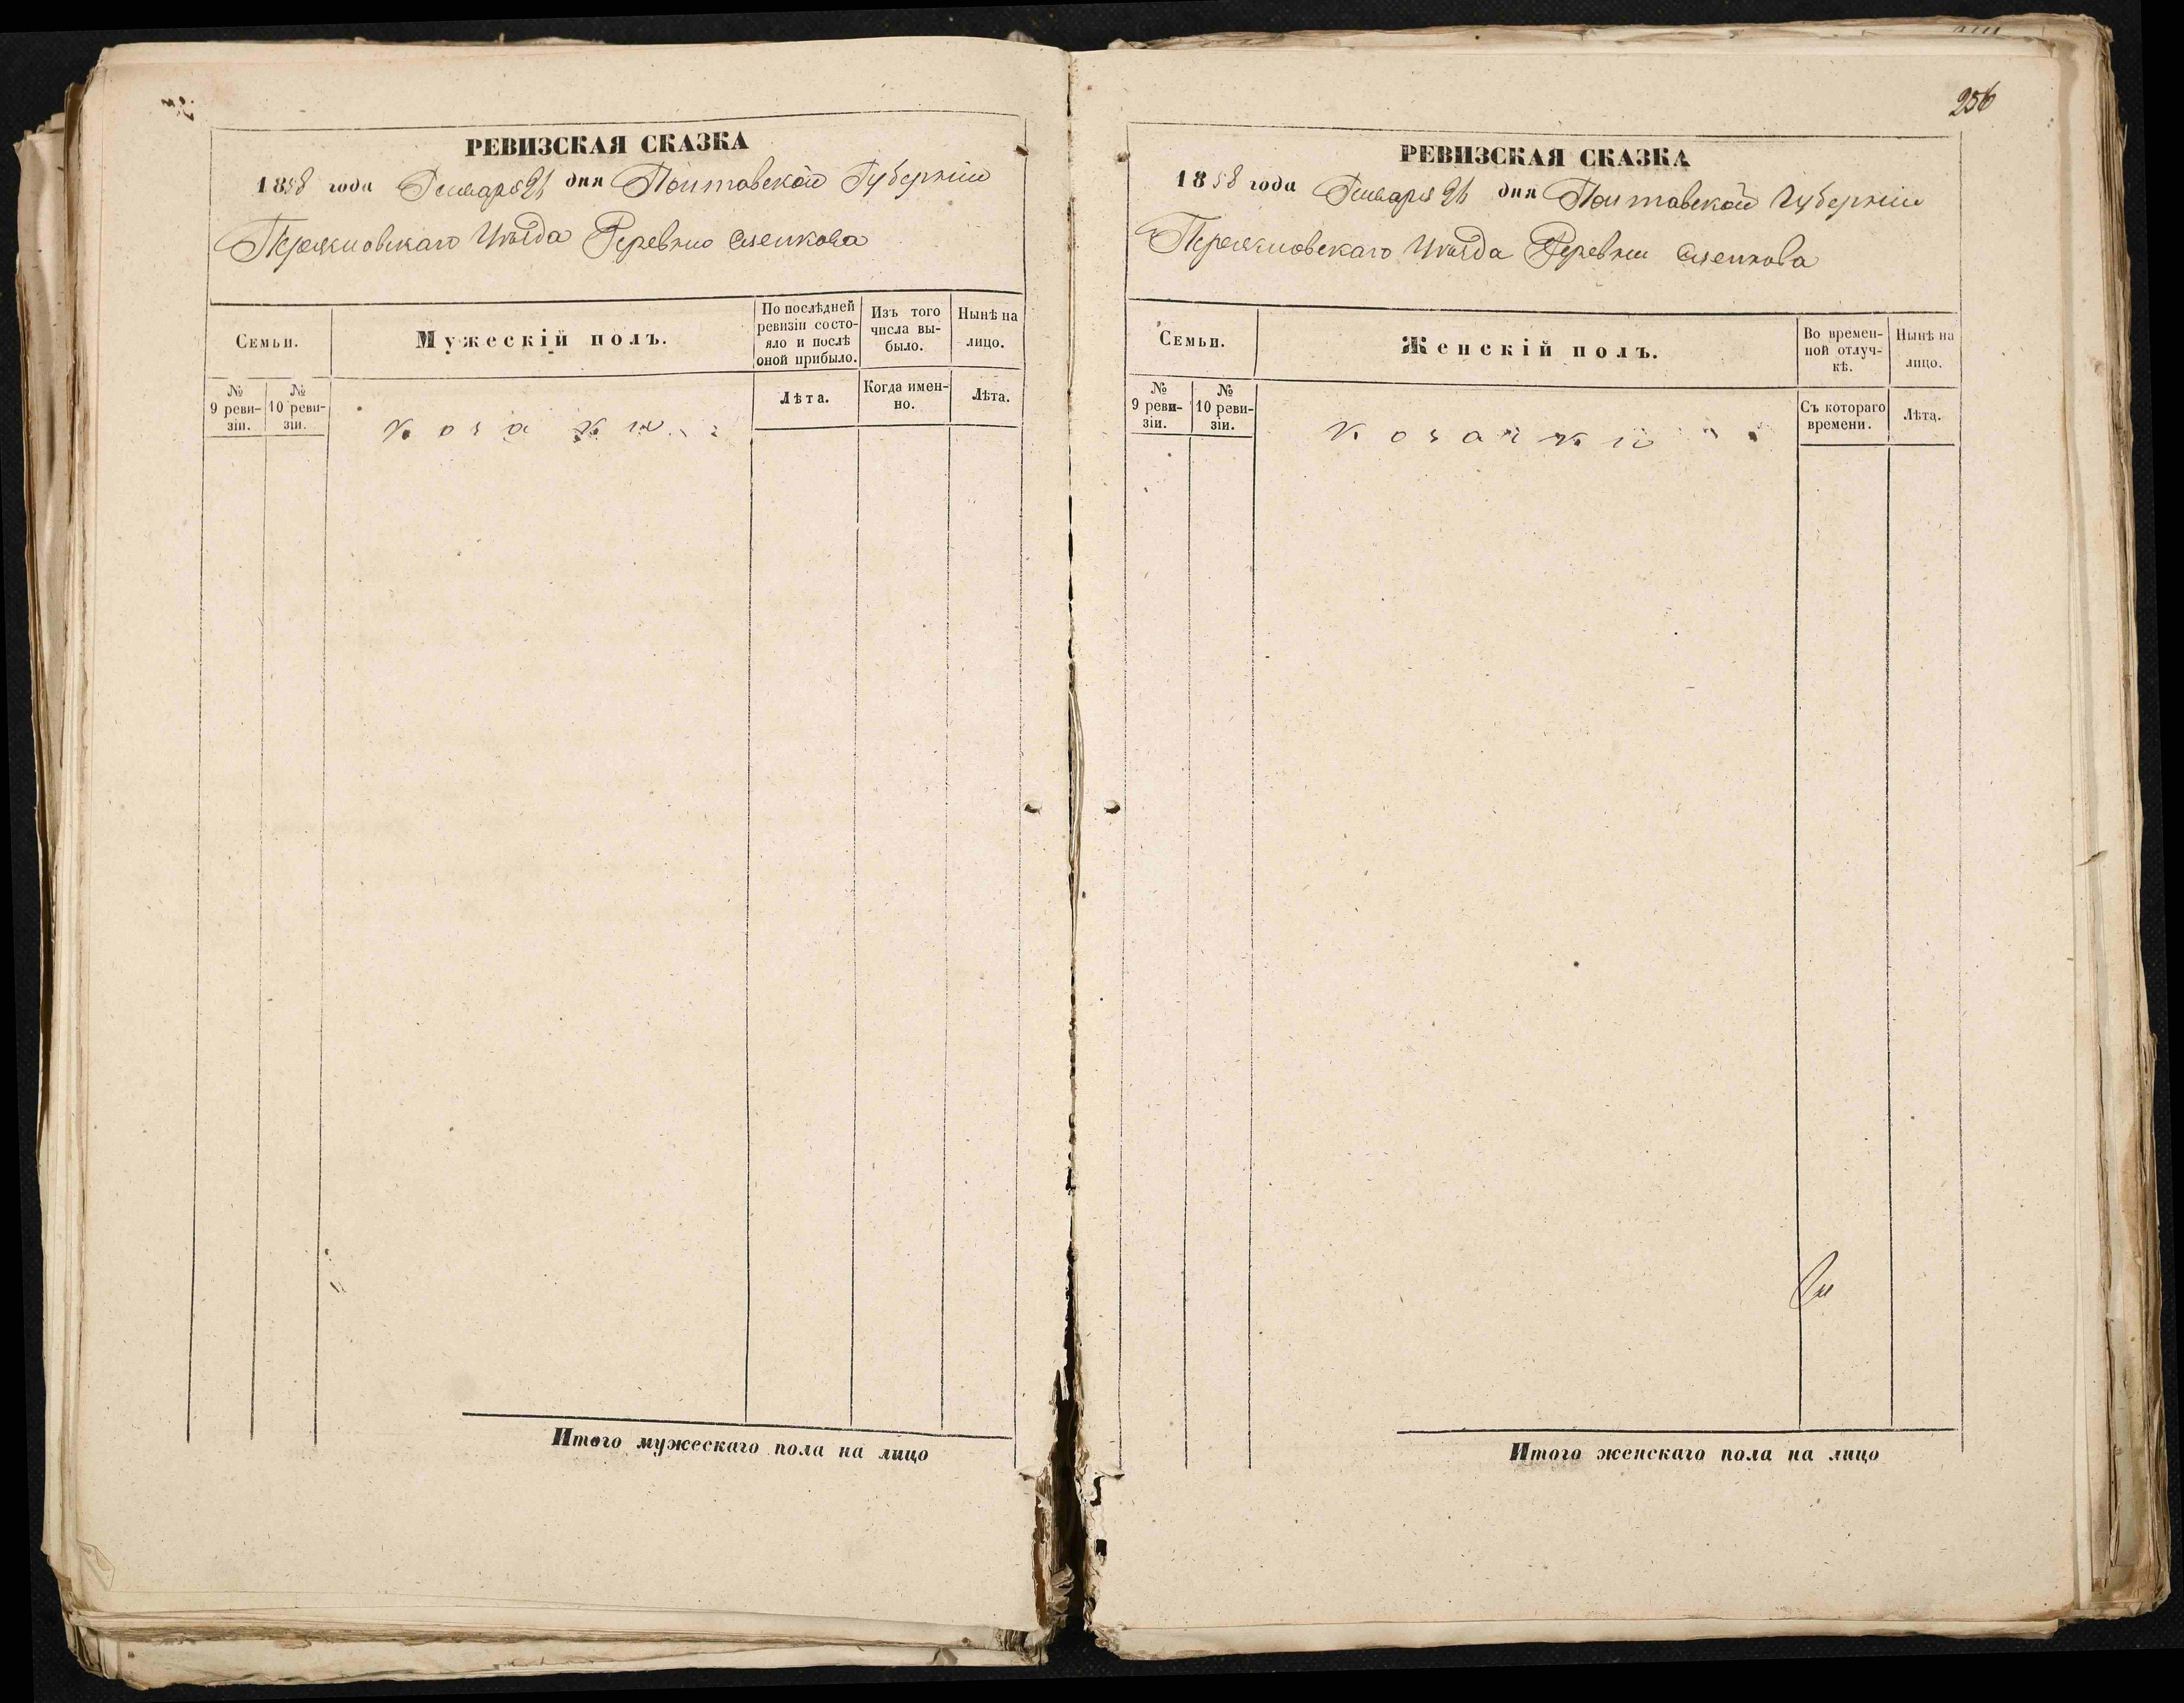 РЕВИЗСКАЯ СКАЗКА
1858 года Генваря 21 дня Полтавской Губерніи
Уѣзда Деревни
Семьи.
Мужескій полъ.
По послѣдней ревизіи состояло и послѣ оной прибыло.
Изъ того числа выбыло.
Нынѣ на лицо.
№ 9 ревизіи.
№ 10 ревизіи.
козаки
Лѣта.
Когда именно.
Лѣта.
Итого мужескаго пола на лицо
256
РЕВИЗСКАЯ СКАЗКА
1858 года Генваря 21 дня Полтавской Губерніи
Уѣзда Деревни
Семьи.
Женскій полъ.
Во временной отлучкѣ.
Нынѣ на лицо.
№ 9 ревизіи.
№ 10 ревизіи.
козачки
Съ котораго времени.
Лѣта.
Итого женскаго пола на лицо